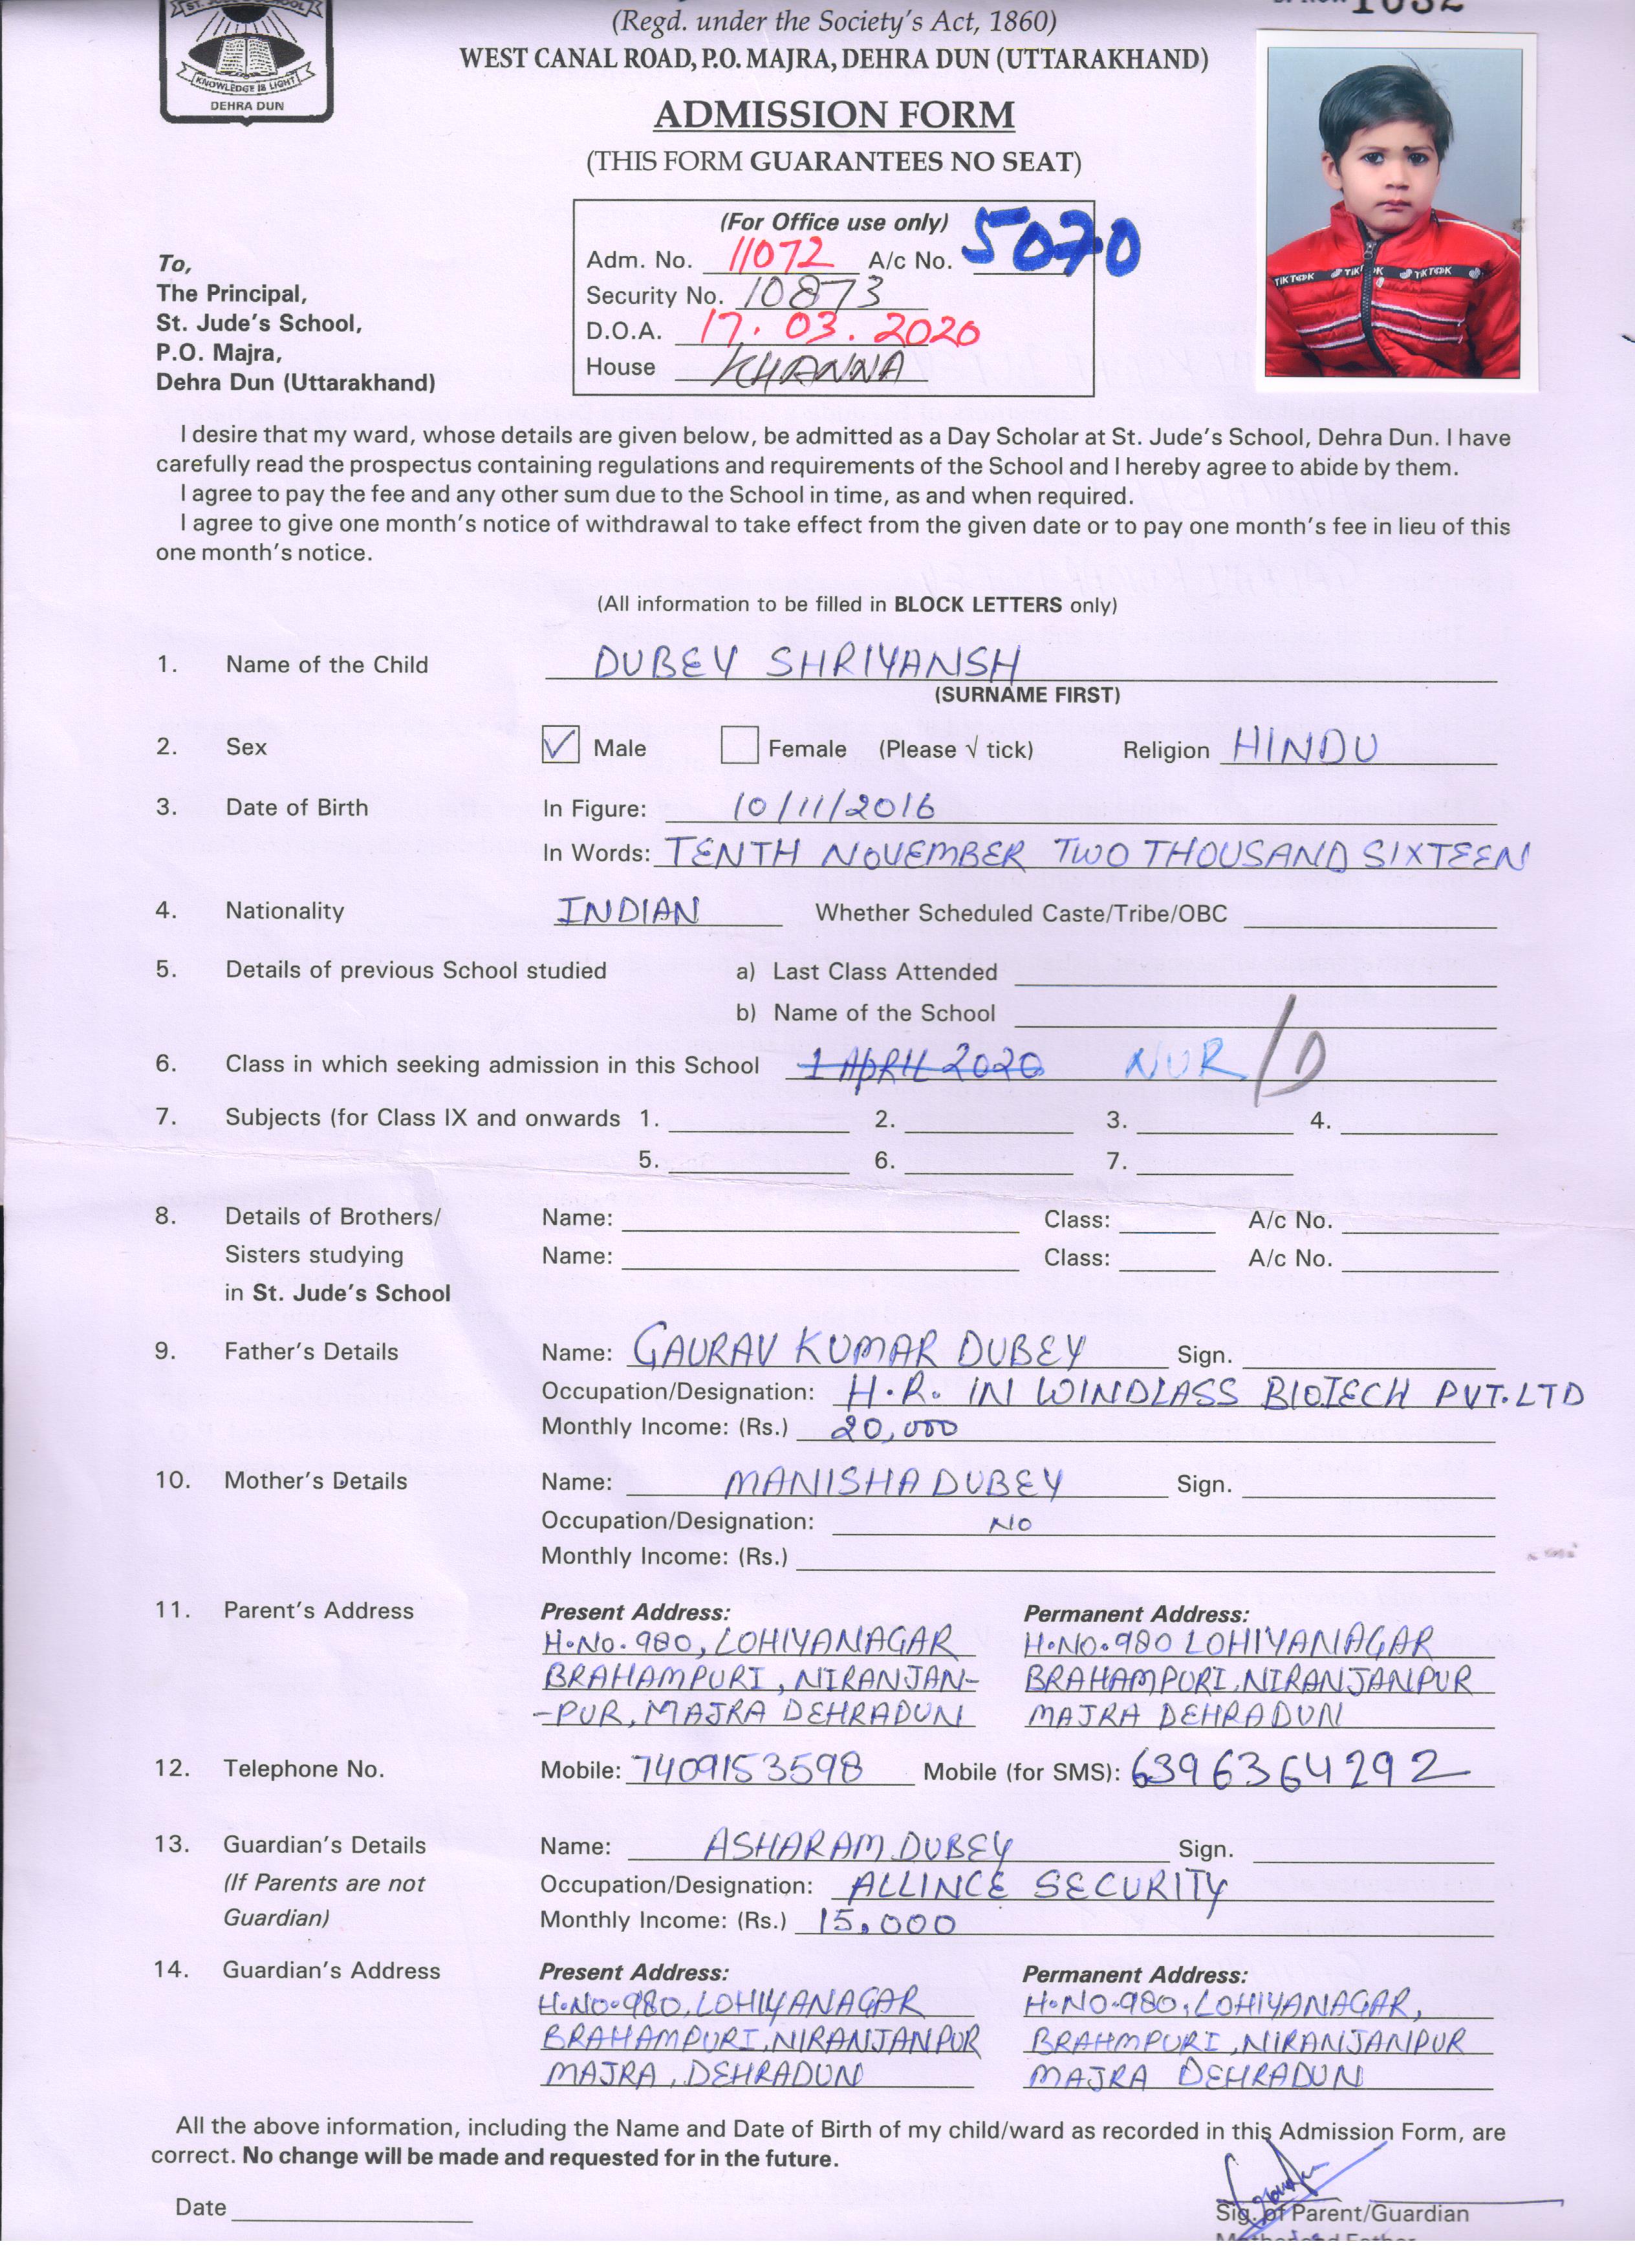 ST. JUDE'S SCHOOL
KNOWLEDGE IS LIGHT
DEHRA DUN
1032
(Regd. under the Society's Act, 1860)
WEST CANAL ROAD, P.O. MAJRA, DEHRA DUN (UTTARAKHAND)
ADMISSION FORM
(THIS FORM GUARANTEES NO SEAT)
(For Office use only)
Adm. No. 11072 A/c No. 5070
Security No. 10873
D.O.A. 17.03.2020
House KHANNA
TIKTOK TIKTOK TIKTOK
To,
The Principal,
St. Jude's School,
P.O. Majra,
Dehra Dun (Uttarakhand)
I desire that my ward, whose details are given below, be admitted as a Day Scholar at St. Jude's School, Dehra Dun. I have
carefully read the prospectus containing regulations and requirements of the School and I hereby agree to abide by them.
I agree to pay the fee and any other sum due to the School in time, as and when required.
I agree to give one month's notice of withdrawal to take effect from the given date or to pay one month's fee in lieu of this
one month's notice.
(All information to be filled in BLOCK LETTERS only)
1. Name of the Child DUBEY SHRIYANSH
(SURNAME FIRST)
2. Sex ✓ Male Female (Please √ tick) Religion HINDU
3. Date of Birth In Figure: 10/11/2016
In Words: TENTH NOVEMBER TWO THOUSAND SIXTEEN
4. Nationality INDIAN Whether Scheduled Caste/Tribe/OBC
5. Details of previous School studied a) Last Class Attended
b) Name of the School
6. Class in which seeking admission in this School 1 APRIL 2020 NUR/D
7. Subjects (for Class IX and onwards 1. 2. 3. 4.
5. 6. 7.
8. Details of Brothers/ Name: Class: A/c No.
Sisters studying Name: Class: A/c No.
in St. Jude's School
9. Father's Details Name: GAURAV KUMAR DUBEY Sign.
Occupation/Designation: H.R. IN WINDLASS BIOTECH PVT.LTD
Monthly Income: (Rs.) 20,000
10. Mother's Details Name: MANISHA DUBEY Sign.
Occupation/Designation: NO
Monthly Income: (Rs.)
11. Parent's Address Present Address: Permanent Address:
H.No.980, LOHIYANAGAR H.NO.980 LOHIYANAGAR
BRAHAMPURI, NIRANJAN- BRAHAMPURI, NIRANJANPUR
-PUR, MAJRA DEHRADUN MAJRA DEHRADUN
12. Telephone No. Mobile: 7409153598 Mobile (for SMS): 6396364292
13. Guardian's Details Name: ASHARAM DUBEY Sign.
(If Parents are not Occupation/Designation: ALLINCE SECURITY
Guardian) Monthly Income: (Rs.) 15,000
14. Guardian's Address Present Address: Permanent Address:
H.NO.980, LOHIYANAGAR H.NO.980, LOHIYANAGAR,
BRAHAMPURI, NIRANJANPUR BRAHMPURI, NIRANJANPUR
MAJRA, DEHRADUN MAJRA DEHRADUN
All the above information, including the Name and Date of Birth of my child/ward as recorded in this Admission Form, are
correct. No change will be made and requested for in the future.
Date
Sig. of Parent/Guardian